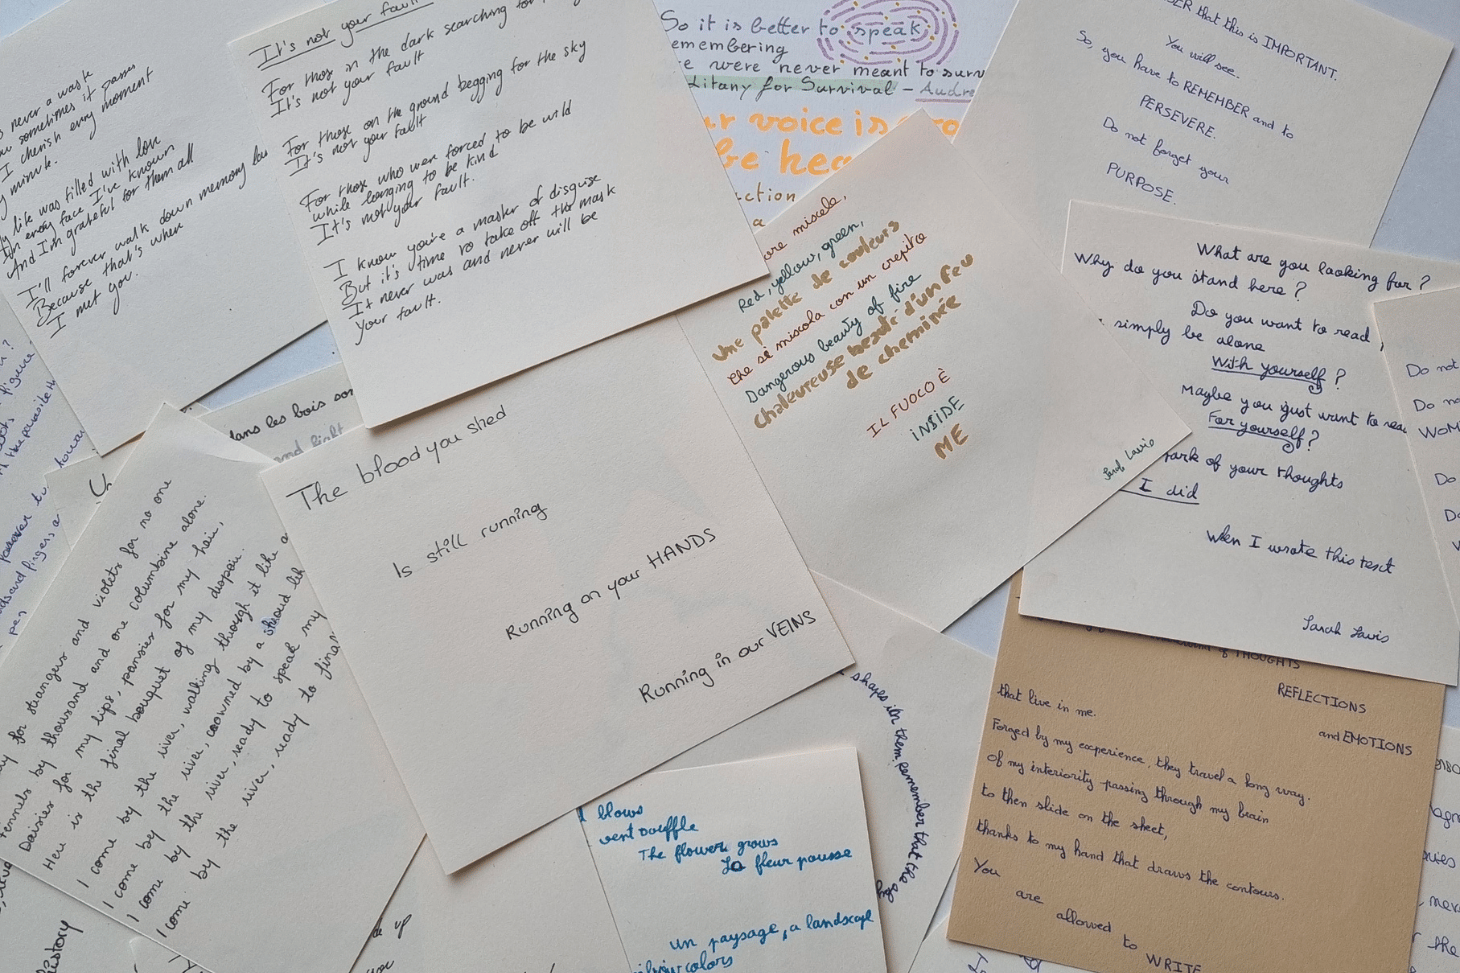 never a was k
sometimes it passes
I cherish every moment
minute.
like was filled with love
every face I've known
And I'm grateful for them all
I'll forever walk down memory
Because that's where
I met you.
It's not your fault
For those in the dark searching for
It's not your fault
For those on the ground begging for the sky
It's not your fault
For those who were forced to be wild
while longing to be kind
It's not your fault.
I know you're a master of disguise
But it's time to take off the mask
It never was and never will be
your fault.
So it is better to speak,
emembering
e were never meant to surv
Litany for Survival - Audre
ur voice is
be hea
ction
a
that this is IMPORTANT.
You will see.
So, you have to REMEMBER and to
PERSEVERE.
Do not forget your
PURPOSE.
miscela,
Red, yellow, green,
Une palette de couleurs
che si miscela con un crepitio
Dangerous beauty of fire
Chaleureuse beauté d'un feu
de cheminée
IL FUOCO È
INSIDE
ME
What are you looking for?
Why do you stand here?
Do you want to read,
simply be alone
With yourself?
Maybe you just want to rea
For yourself?
of your thoughts
I did
When I wrote this text
Sarah Lavis
Do not
Do no
WOM
Do
dans les bois son
and light
The blood you shed
Is still running
Running on your HANDS
Running in our VEINS
for strangers and violets for no one
by thousand and one columbine alone.
Daisies for my lips, pansies for my hair,
Here is the final bouquet of my despair.
I come by the river, walking through it like a
I come by the river, crowned by a shroud
I come by the river, ready to speak my
I come by the river, ready to final
shapes in them, Remember that the
blows
vent souffle
The flowers grows
La fleur pousse
un paysage, a landscape
colors
of THOUGHTS
REFLECTIONS
and EMOTIONS
that live in me.
Forged by my experience, they travel a long way.
Of my interiority passing through my brain
to then slide on the sheet,
thanks to my hand that draws the contours.
You
are
allowed
to
WRITE
istory
up